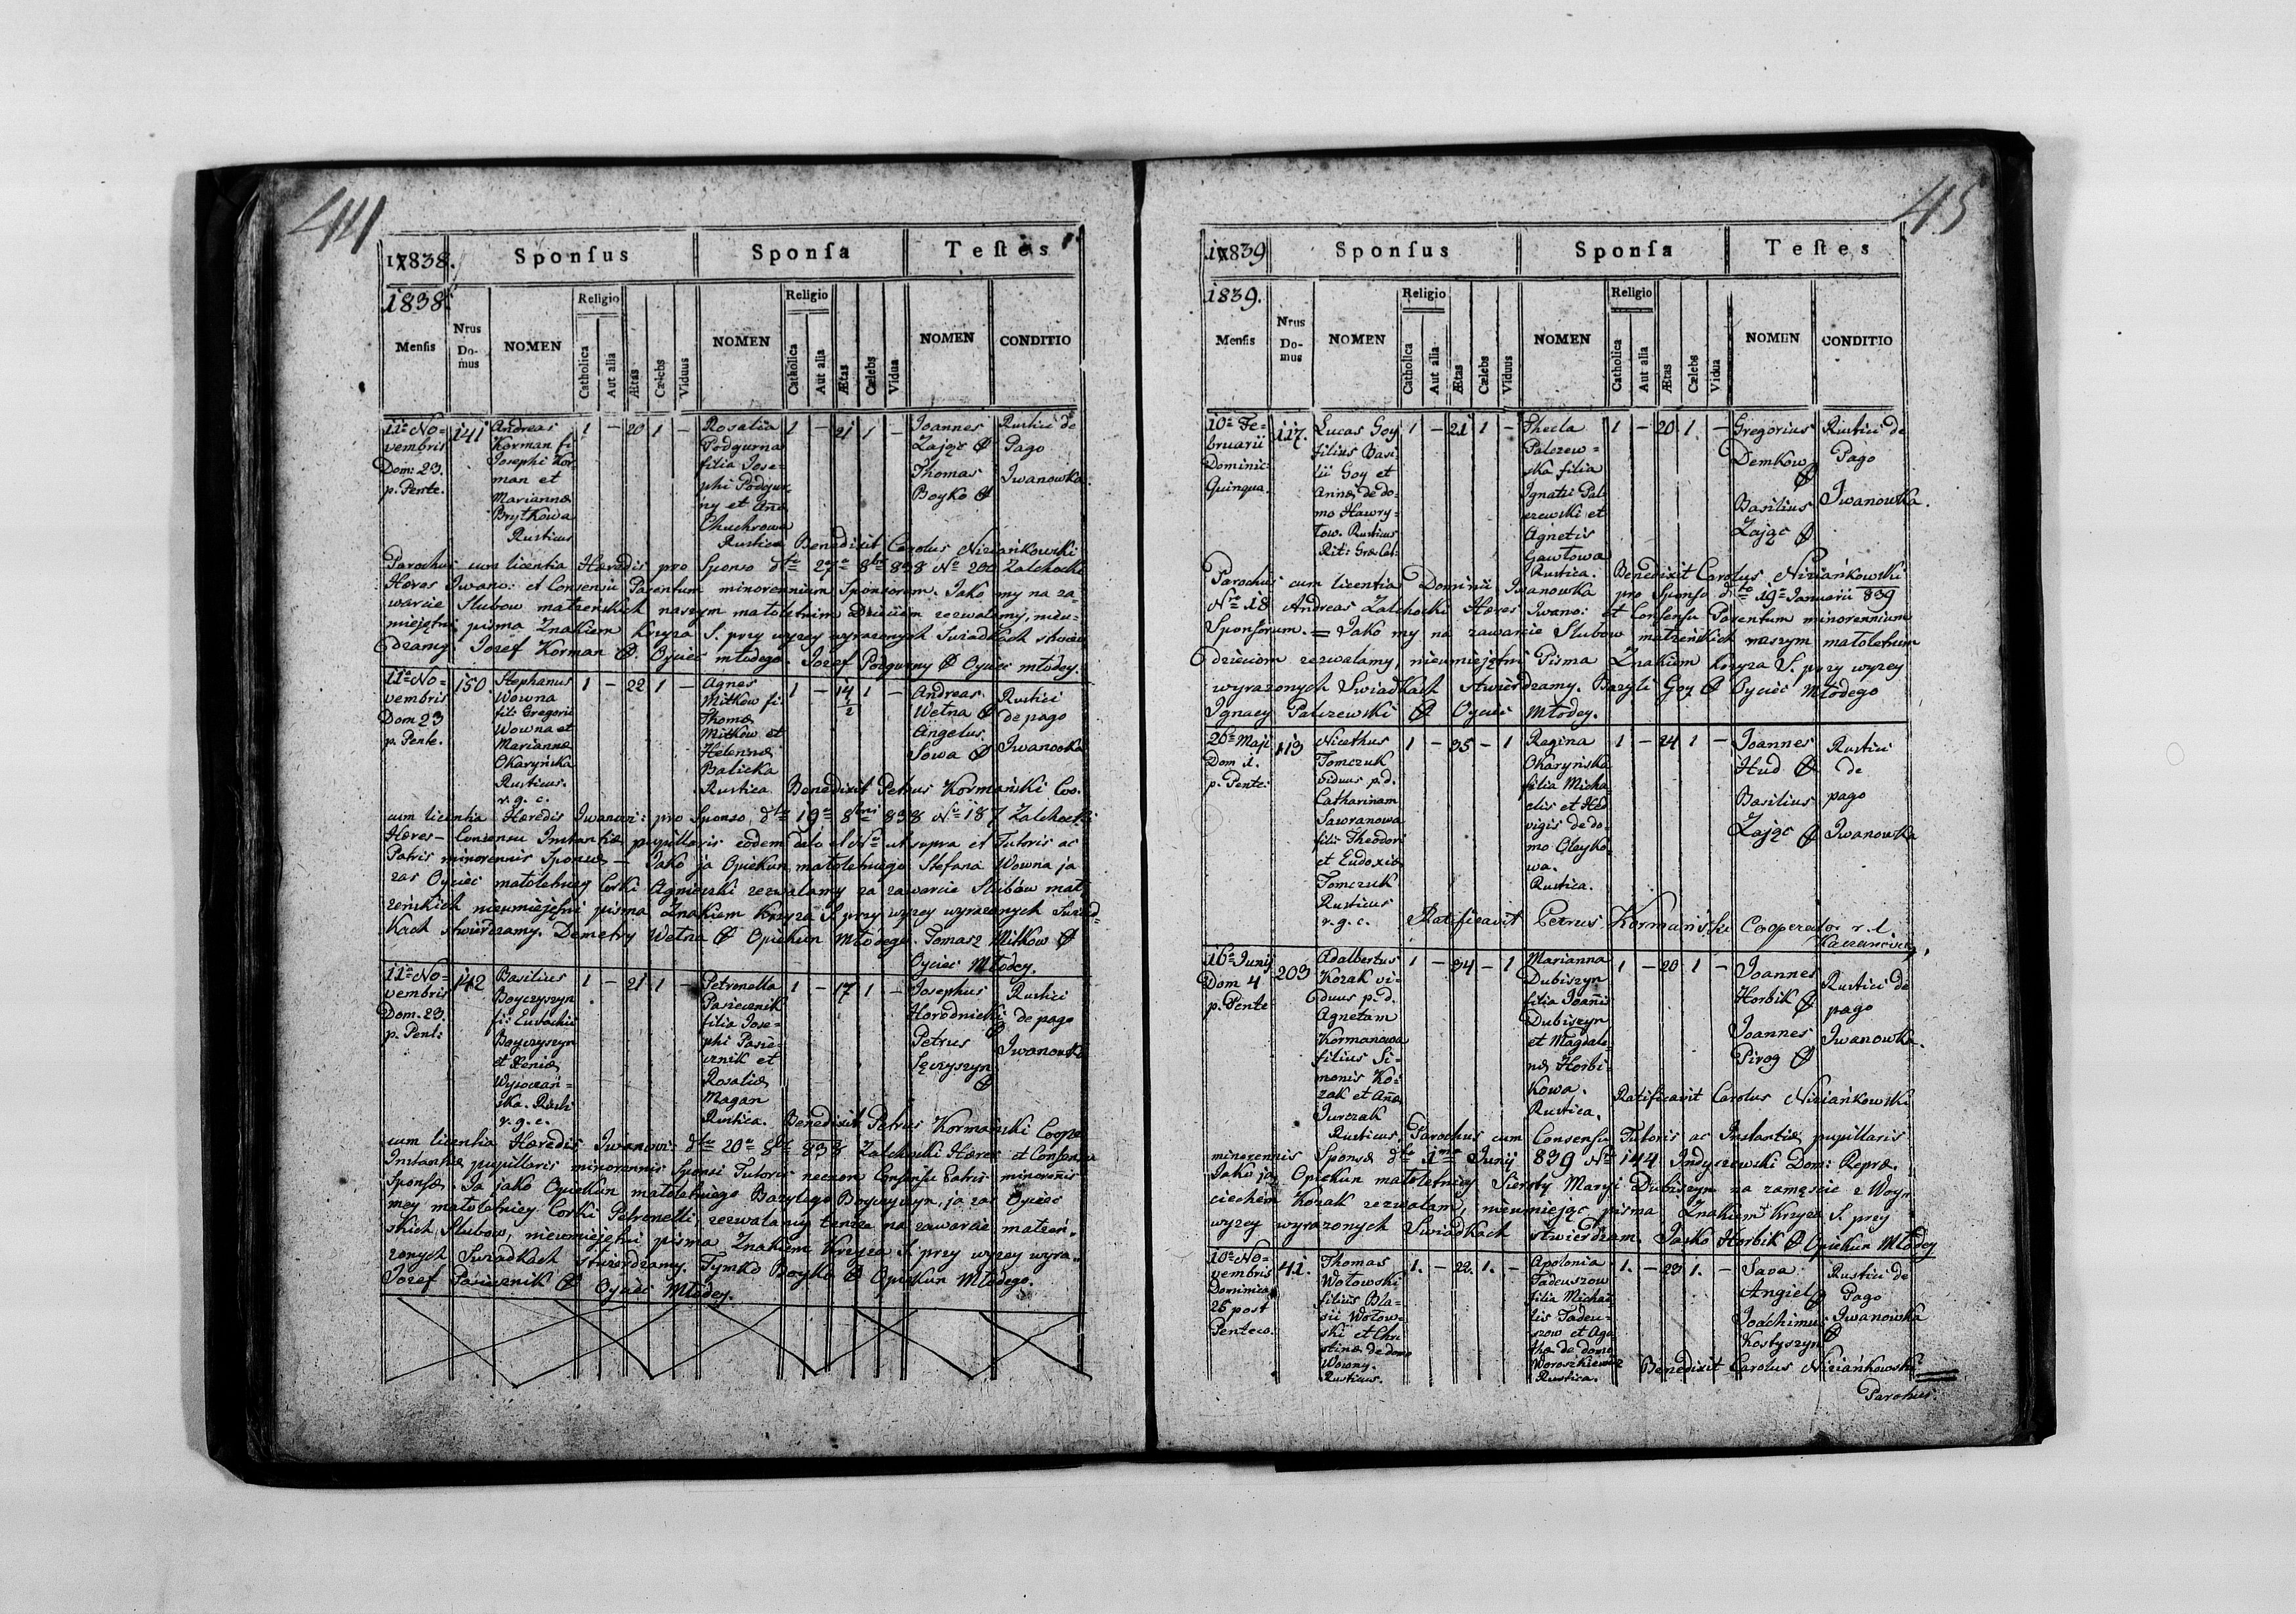 44
1838.
Sponsus
Sponsa
Testes
1838.
Mensis
Nrus Domus
NOMEN
Religio
Catholica
Aut alia
Ætas
Cælebs
Viduus
NOMEN
Religio
Catholica
Aut alia
Ætas
Cælebs
Vidua
NOMEN
CONDITIO
11a No=
vembris
Dom: 23.
p. Pente.
141
Andreas
Korman fi:
Josephi Kor
man et
Mariannæ
Brytkowa
Rusticus
1 — 20 1 —
Rosalia
Podgurna
filia Jose=
phi Podgur
ny et Anæ
Chuchrowa
Rustica
1 — 21 1 —
Joannes
Zając
Thomas
Boyko
Rustici de
Pago
Iwanowka.
Benedixit Carolus Niziańkowski
Parochus cum licentia Hæredis pro Sponso dto 27a 8bris 838 No 200 Zalchocki
Hæres Iwano: et Consensu Parentum minorennium Sponsorum. Jako my na za=
warcie Slubow matzenskich naszym matoletnim Dzieciom zezwalamy, nieu=
miejętni pisma Znakiem Krzyza S. przy wyzey wyrazonych Swiadkach stwier
dzamy. Jozef Korman Oyciec młodego. Jozef Podgurny Oyciec młodey.
11a No=
vembris
Dom 23
p. Pente.
150
Stephanus
Wowna
fili Gregorii
Wowna et
Mariannæ
Okaryńska
Rusticus.
r. g. c.
1 — 22 1 —
Agnes
Mitkow fi:
Thomæ
Mitkow et
Helennæ
Balicka
Rustica
1 — 14 1/2 1 —
Andreas
Wetna
Angelus
Sowa
Rustici
de pago
Iwanowka
Benedixit Petrus Kormański Coo.
cum licentia Hæredis Iwanow: pro Sponso, dto 19a 8bris 838 No 187 Zalchocki
Hæres — Consensu Instantiæ pupillaris eodem dato et No ut supra et Tutoris ac
Patris minorennis Sponsæ — Jako ja Opiekun matoletniego Stefana Wowna ja
zas Oyciec matoletniey Corki Agnieszki zezwalamy za zawarcie Slubów mat
zeńskich nieumiejętni pisma Znakiem Krzyza S. przy wyzey wyrazonych Swiad=
kach stwierdzamy. Demetry Wetna Opiekun Młodego. Tomasz Mitkow
Oyciec Młodey.
11a No=
vembris
Dom. 23.
p. Pent:
142
Basilius
Boyczyszyn
fi: Eustachii
Boyczyszyn
et Xeniæ
Wysoczań=
ska. Rusti
r. g. c.
1 — 21 1 —
Petronella
Pasiecznik
filia Jose=
phi Pasie=
cznik et
Rosaliæ
Magan
Rustica.
1 — 17 1 —
Josephus
Horodnicki
Petrus
Sęczyszyn
Rustici
de pago
Iwanowka
Benedixit Petrus Kormański Coope
cum licentia Hæredis Iwanow: dto 20a 8bris 838 Zalchocki Hæres et Consensu
Instantiæ pupillaris minorennis Sponsi Tutoris necnon Consensu Patris minorenis
Sponsæ. Ja jako Opiekun matoletniego Bazylego Boyczyszyn, ja zas Oyciec
mey matoletniey Corki Petronelli, zezwalamy tymze na zawarcie matzeń=
skich Slubow, nieumiejętni pisma Znakiem Krzyza S. przy wyzey wyra=
zonych Swiadkach stwierdzamy. Tymko Boyko Opiekun Młodego.
Jozef Pasiecznik Oyciec Młodey.
45
1839
Sponsus
Sponsa
Testes
1839.
Mensis
Nrus Domus
NOMEN
Religio
Catholica
Aut alia
Ætas
Cælebs
Viduus
NOMEN
Religio
Catholica
Aut alia
Ætas
Cælebs
Vidua
NOMEN
CONDITIO
10a Fe=
bruarii
Dominic:
Quinqua.
117.
Lucas Goy
filius Basi
lii Goy et
Annæ de do=
mo Hawry=
tow. Rusticus
Riti: Græ Cat:
1 — 21 1 —
Thecla
Palczew=
ska filia
Ignatii Pal
czewski et
Agnetis
Gawtowa
Rustica.
1 — 20 1. —
Gregorius
Demkow
Basilius
Zając
Rustici de
Pago
Iwanowka.
Benedixit Carolus Niziańkowski
Parochus cum licentia Dominii Iwanowka pro Sponso dto 19a Januarii 839
No 18 Andreas Zalchocki Hæres Iwano: et Consensu Parentum minorennium
Sponsorum. = Jako my na zawarcie Slubow matzeńskich naszym matoletnim
dzieciom zezwalamy, nieumiejętni Pisma Znakiem krzyza S. przy wyzey
wyrazonych Swiadkach stwierdzamy. Bazyli Goy Oyciec Młodego
Ignacy Palczewski Oyciec Młodey.
26a Maji
Dom 1.
p. Pente:
113
Nicethus
Tomczuk
viduus p. d.
Catharinam
Sawranowa
filii Theodori
et Eudoxiæ
Tomczuk
Rusticus
r. g. c.
1 — 35 — 1
Regina
Okaryńska
filia Micha=
elis et Hed
vigis de do=
mo Oleyko=
wa.
Rustica.
1 — 24 1 —
Joannes
Hud
Basilius
Zając
Rustici
de
pago
Iwanowka
Ratificavit Petrus Kormański Cooperator r. l.
16a Junij
Dom 4
p. Pente
203
Adalbertus
Kozak vi=
duus p. d.
Agnetam
Kormanowa
filius Si=
monis Ko=
zak et Anæ
Jurczak
Rusticus
1 — 34 — 1
Marianna
Dubiszyn
filia Joanis
Dubiszyn
et Magdale
næ Horbi=
kowa.
Rustica.
1 — 20 1 —
Joannes
Horbik
Joannes
Pirog
Rustici de
pago
Iwanowka.
Ratificavit Carolus Niziańkowski
Parochus cum Consensu Tutoris ac Instantiæ pupillaris
minorennis Sponsæ dto 1ma Junij 839 No 144 Indyczewski Dom: Repræ.
Jako ja Opiekun matoletniey Sieroty Maryi Dubiszyn na zamęscie z Woy
ciechem Kozak zezwalam, nieumiejąc pisma Znakiem Krzyza S. przy
wyzey wyrazonych Swiadkach stwierdzam. Jasko Horbik Opiekun Młodey
10a No=
vembris
Dominica
25 post
Penteco.
41.
Thomas
Wotowski
filius Bla=
sii Wotow=
ski et Chri
stinæ de domo
Wowny.
Rusticus.
1. — 22. 1. —
Apolonia
Tadeuszow
filia Michae
lis Tadeu=
szow et Aga
thæ de domo
Woroszkiewicz
Rustica.
1. — 23 1. —
Sava
Angiel
Joachimus
Kostyszyn
Rustici de
Pago
Iwanowka
Benedixit Carolus Niziańkowski
Parohus.